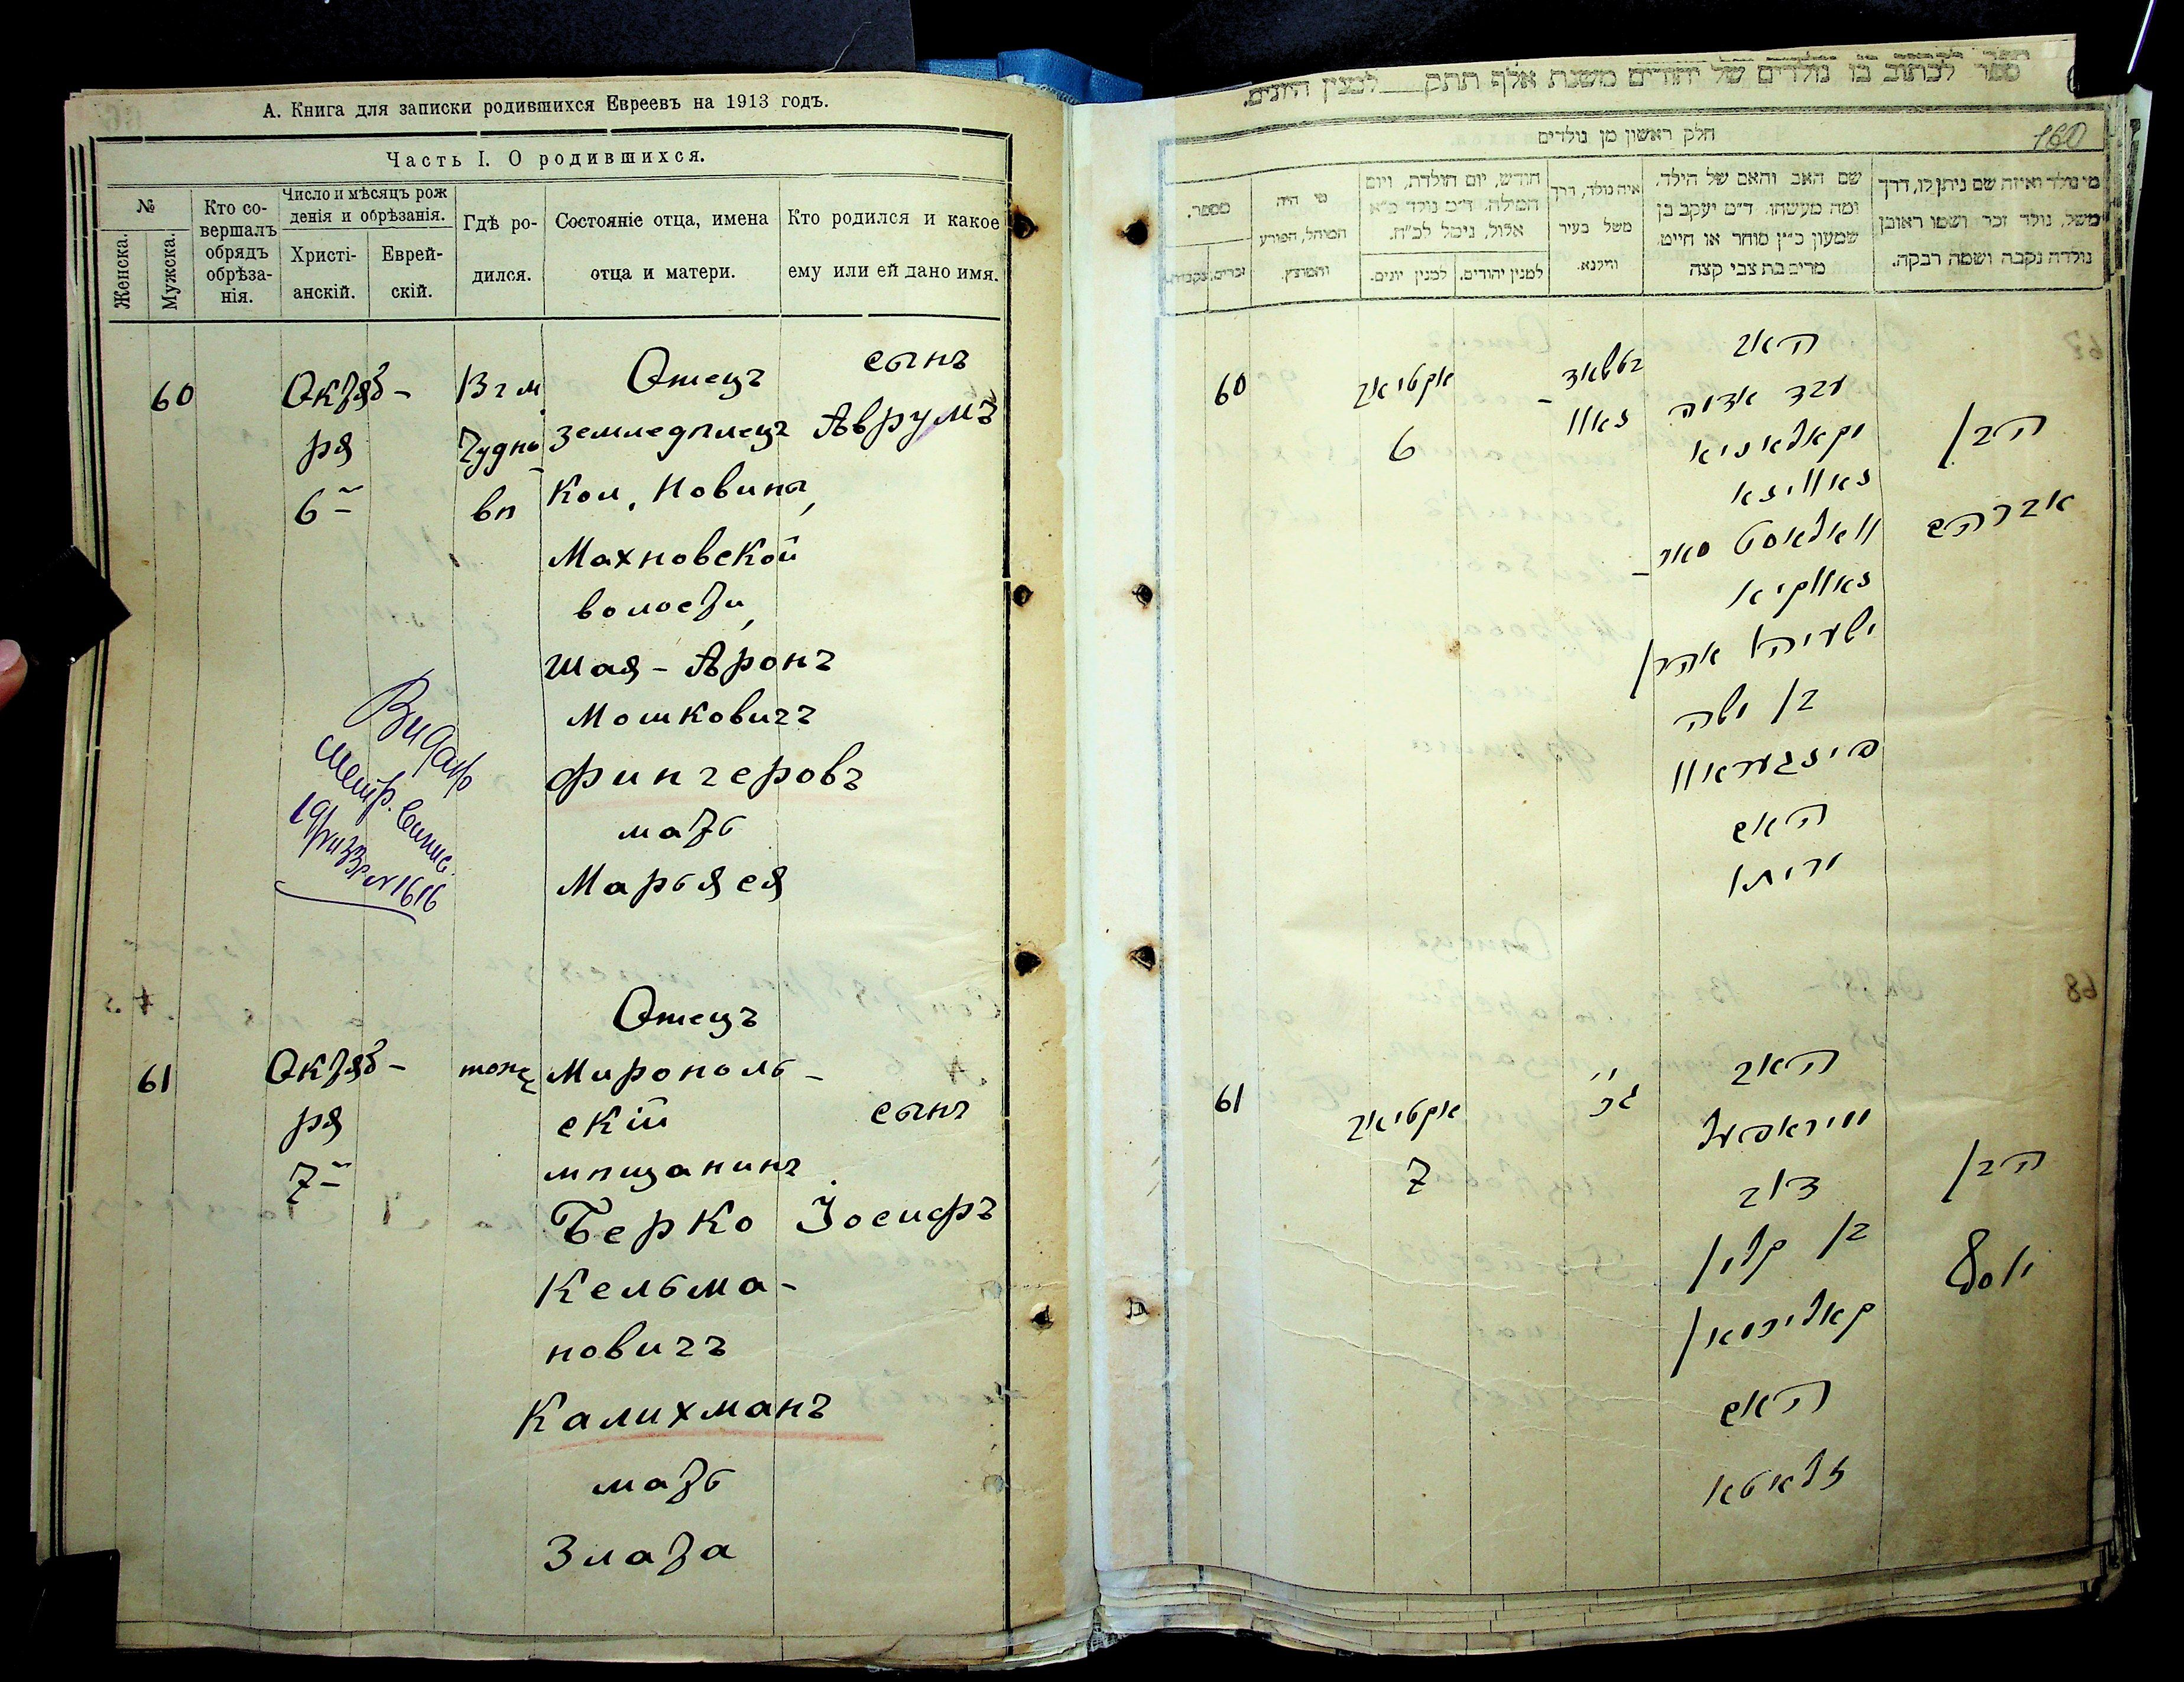 А. Книга для записки родившихся Евреевъ на 1913 годъ.
Часть I. О родившихся.
№
Женска.
Мужска.
Кто со-
вершалъ
обрядъ
обрѣза-
нія.
Число и мѣсяцъ рож
денія и обрѣзанія.
Христі-
анскій.
Еврей-
скій.
Гдѣ ро-
дился.
Состояніе отца, имена
отца и матери.
Кто родился и какое
ему или ей дано имя.
60
Октяб-
ря
6
В г м
Чудно
вѣ
Отецъ
земледѣлецъ
Кол. Новины,
Махновской
волости,
Шая-Аронъ
Мошковичъ
Фингеровъ
мать
Марьяся
сынъ
Аврумъ
61
Октяб-
ря
7
тоже
Отецъ
Мирополь-
скій
мѣщанинъ
Берко
Кельма-
новичъ
Калихманъ
мать
Злата
сынъ
Іосифъ
ספר לכתוב בו נולדים של יהודים משנת אלף תתק למנין היונים.
160
חלק ראשון מן נולדים
מי נולד ואיזה שם ניתן לו, דרך
משל, נולד זכר ושמו ראובן
נולדה נקבה ושמה רבקה.
שם האב והאם של הילד,
ומה מעשהו. ד״מ יעקב בן
שמעון כ״ץ סוחר או חייט.
מרים בת צבי קצה
איה נולד, דרך
משל בעיר
ווילנא.
חודש, יום הולדת, ויום
המילה. ד״מ נולד כ״א
אלול, נימל לכ״ח.
למנין יהודים.
למנין יונים.
מי היה
המוהל, הפורע
והמוצץ.
מספר.
זכרים.
נקבות.
60
אקטיאב
6
האב
עבד אדמה
קאלאניא
נאווינא
וואלאסט מאכ-
נאווקיא
ישעיהו אהרן
בן משה
פינגעראוו
האם
מרים
הבן
אברהם
61
אקטיאב
7
האב
מיראפעל
דוב
בן קלמן
קאליכמאן
האם
זלאטא
הבן
יוסף